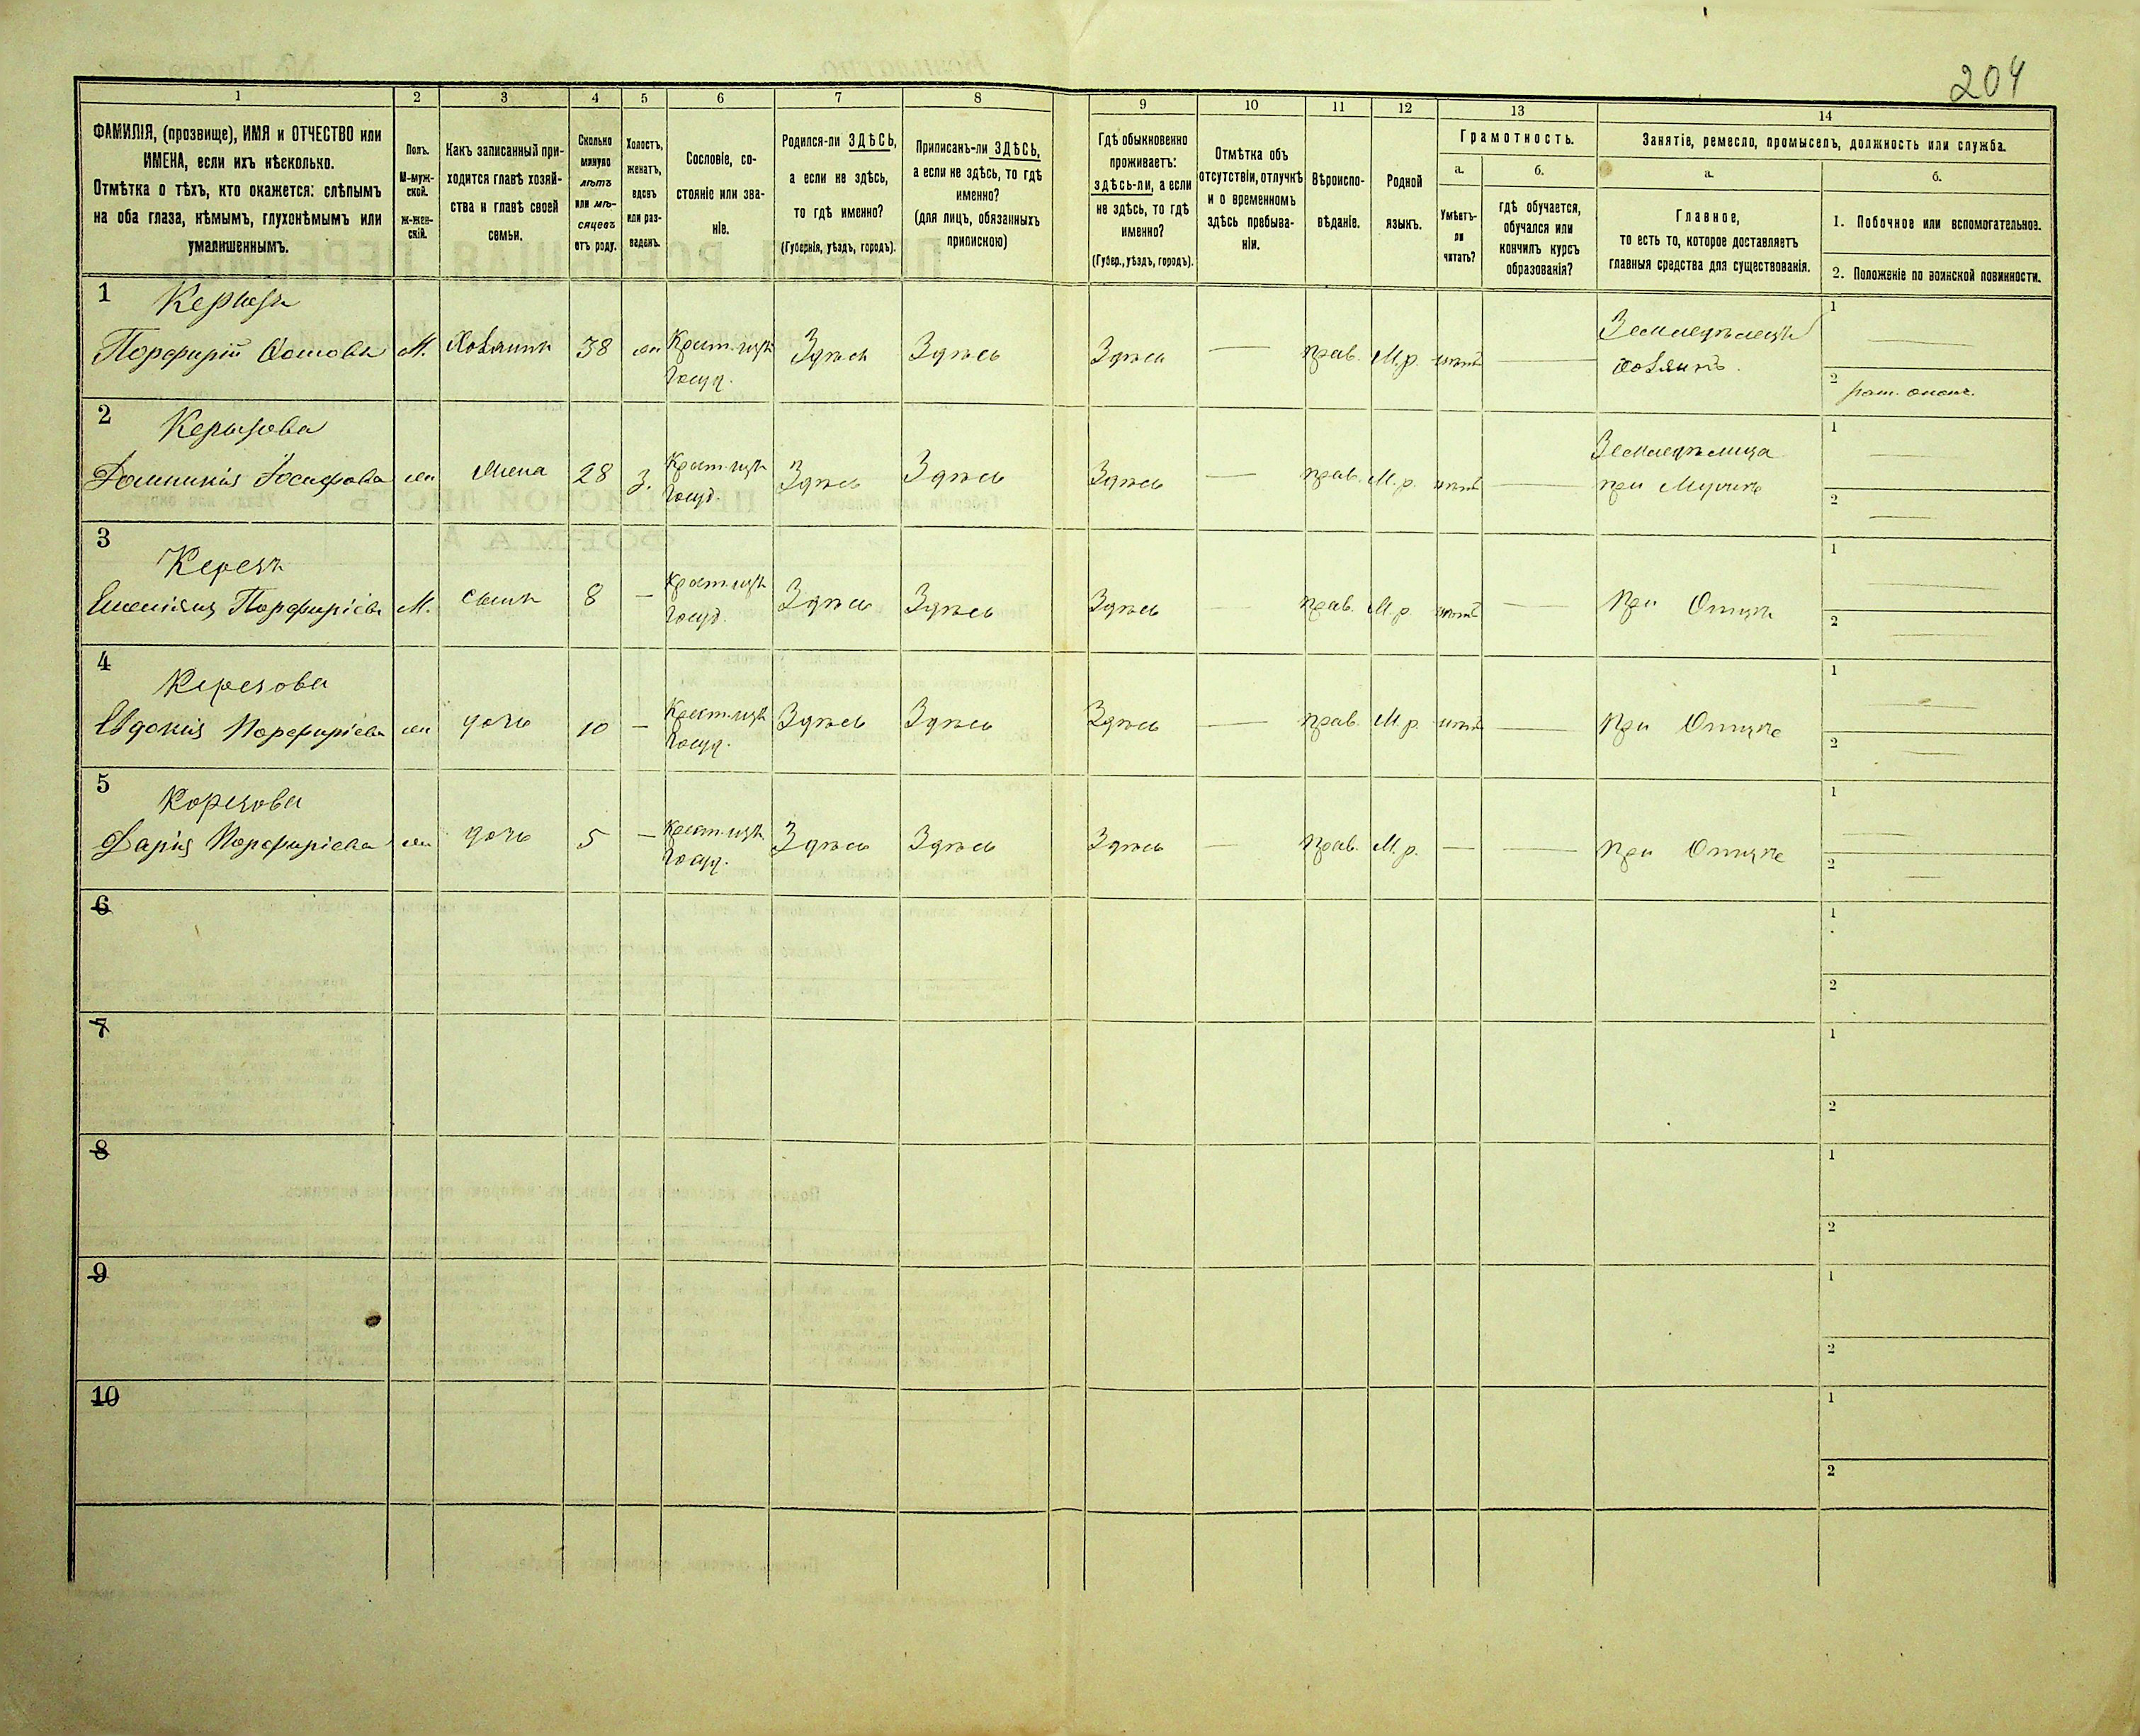 204
1
2
3
4
5
6
7
8
9
10
11
12
13
14
ФАМИЛІЯ, (прозвище), ИМЯ и ОТЧЕСТВО или
ИМЕНА, если ихъ нѣсколько.
Отмѣтка о тѣхъ, кто окажется: слѣпымъ
на оба глаза, нѣмымъ, глухонѣмымъ или
умалишеннымъ.
Полъ.
М-муж-
ской.
ж-жен-
скій.
Какъ записанный при-
ходится главѣ хозяй-
ства и главѣ своей
семьи.
Сколько
минуло
лѣтъ
или мѣ-
сяцевъ
отъ роду.
Холостъ,
женатъ,
вдовъ
или раз-
веденъ.
Сословіе, со-
стояніе или зва-
ніе.
Родился-ли ЗДѢСЬ,
а если не здѣсь,
то гдѣ именно?
(Губернія, уѣздъ, городъ).
Приписанъ-ли ЗДѢСЬ,
а если не здѣсь, то гдѣ
именно?
(для лицъ, обязанныхъ
припискою)
Гдѣ обыкновенно
проживаетъ:
здѣсь-ли, а если
не здѣсь, то гдѣ
именно?
(Губер., уѣздъ, городъ).
Отмѣтка объ
отсутствіи, отлучкѣ
и о временномъ
здѣсь пребыва-
ніи.
Вѣроиспо-
вѣданіе.
Родной
языкъ.
Грамотность.
а.
Умѣетъ-
ли
читать?
б.
гдѣ обучается,
обучался или
кончилъ курсъ
образованія?
Занятіе, ремесло, промыселъ, должность или служба.
а.
Главное,
то есть то, которое доставляетъ
главныя средства для существованія.
б.
1. Побочное или вспомогательное.
2. Положеніе по воинской повинности.
1
Порфирій М. Хозяинъ 38 жн Крест. изъ Здѣсь Здѣсь Здѣсь — прав. М.р. нѣтъ — Земледѣлецъ 1 —
Госуд. хозяинъ. 2 рат. ополч.
2
Іосифова жн Жена 28 З. Крест. изъ Здѣсь Здѣсь Здѣсь — прав. М.р. нѣтъ — Земледѣлица 1 —
Госуд. при Мужѣ 2 —
3 Керезъ
Порфиріевъ М. сынъ 8 — Крест. изъ Здѣсь Здѣсь Здѣсь — прав. М.р. нѣтъ — При Отцѣ 1 —
Госуд. 2 —
4 Керезова
Евдокія Порфиріева жн дочь 10 — Крест. изъ Здѣсь Здѣсь Здѣсь — прав. М.р. нѣтъ — При Отцѣ 1 —
Госуд. 2 —
5 Корезова
Дарія Порфиріева жн дочь 5 — Крест. изъ Здѣсь Здѣсь Здѣсь — прав. М.р. — — При Отцѣ 1 —
Госуд. 2 —
6 1
2
7 1
2
8 1
2
9 1
2
10 1
2